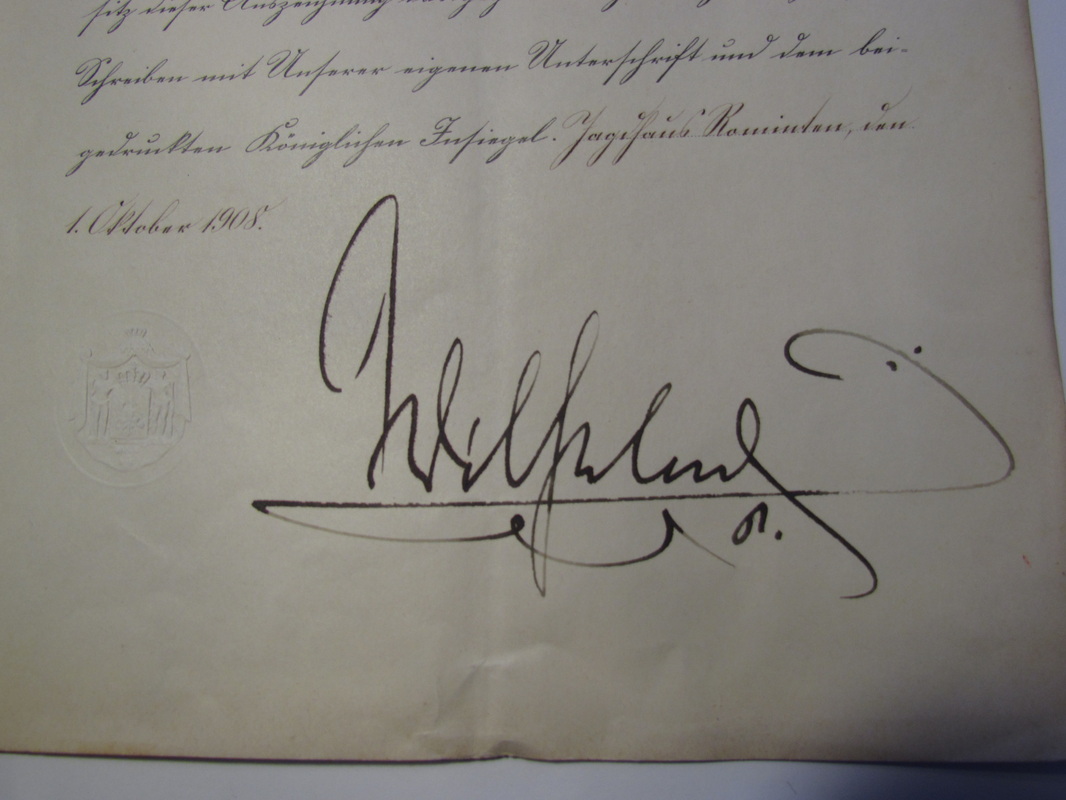 sitz dieser Auszeichnung
Schreiben mit Unserer eigenen Unterschrift und dem bei-
gedruckten Königlichen Insiegel. Jagdhaus Rominten, den
1. Oktober 1908.
Wilhelm
R.